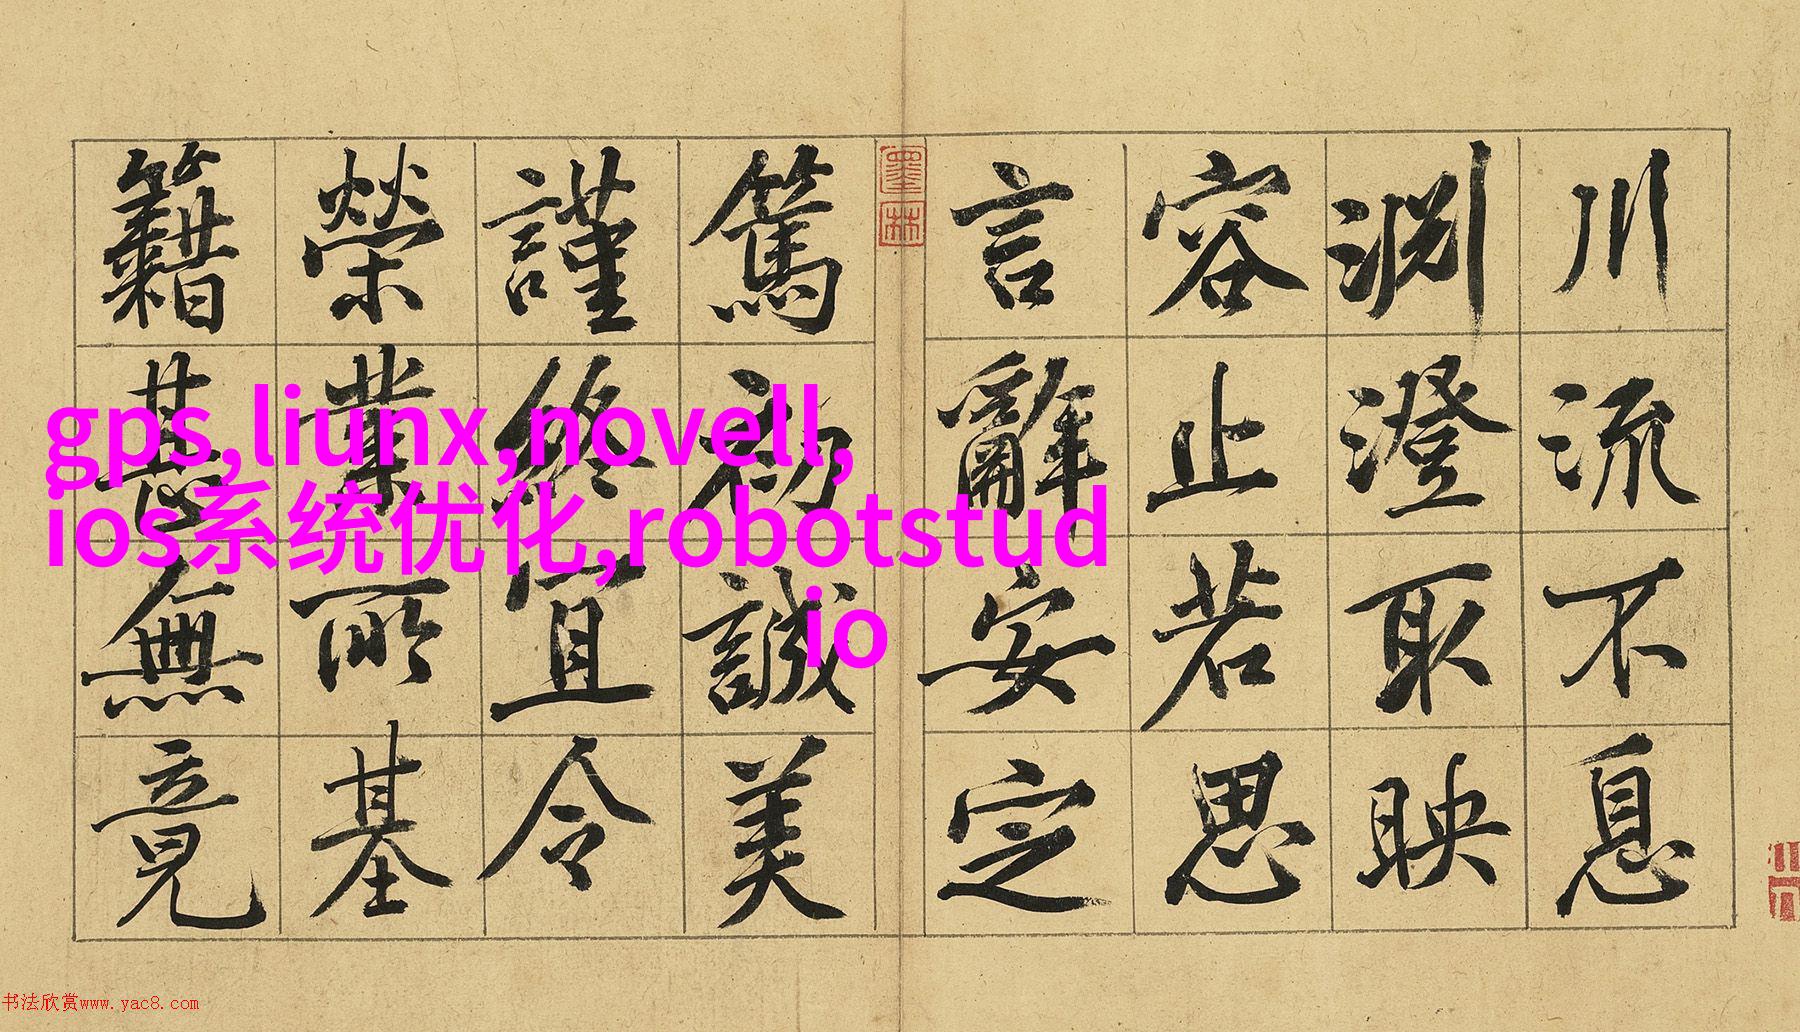 川流不息
渊澄取映
容止若思
言辭安定
墨林
篤初誠美
謹終宜令
榮業所基
籍甚無竟
gps,liunx,novell,
ios系统优化,robotstud
io
书法欣赏www.yac8.com